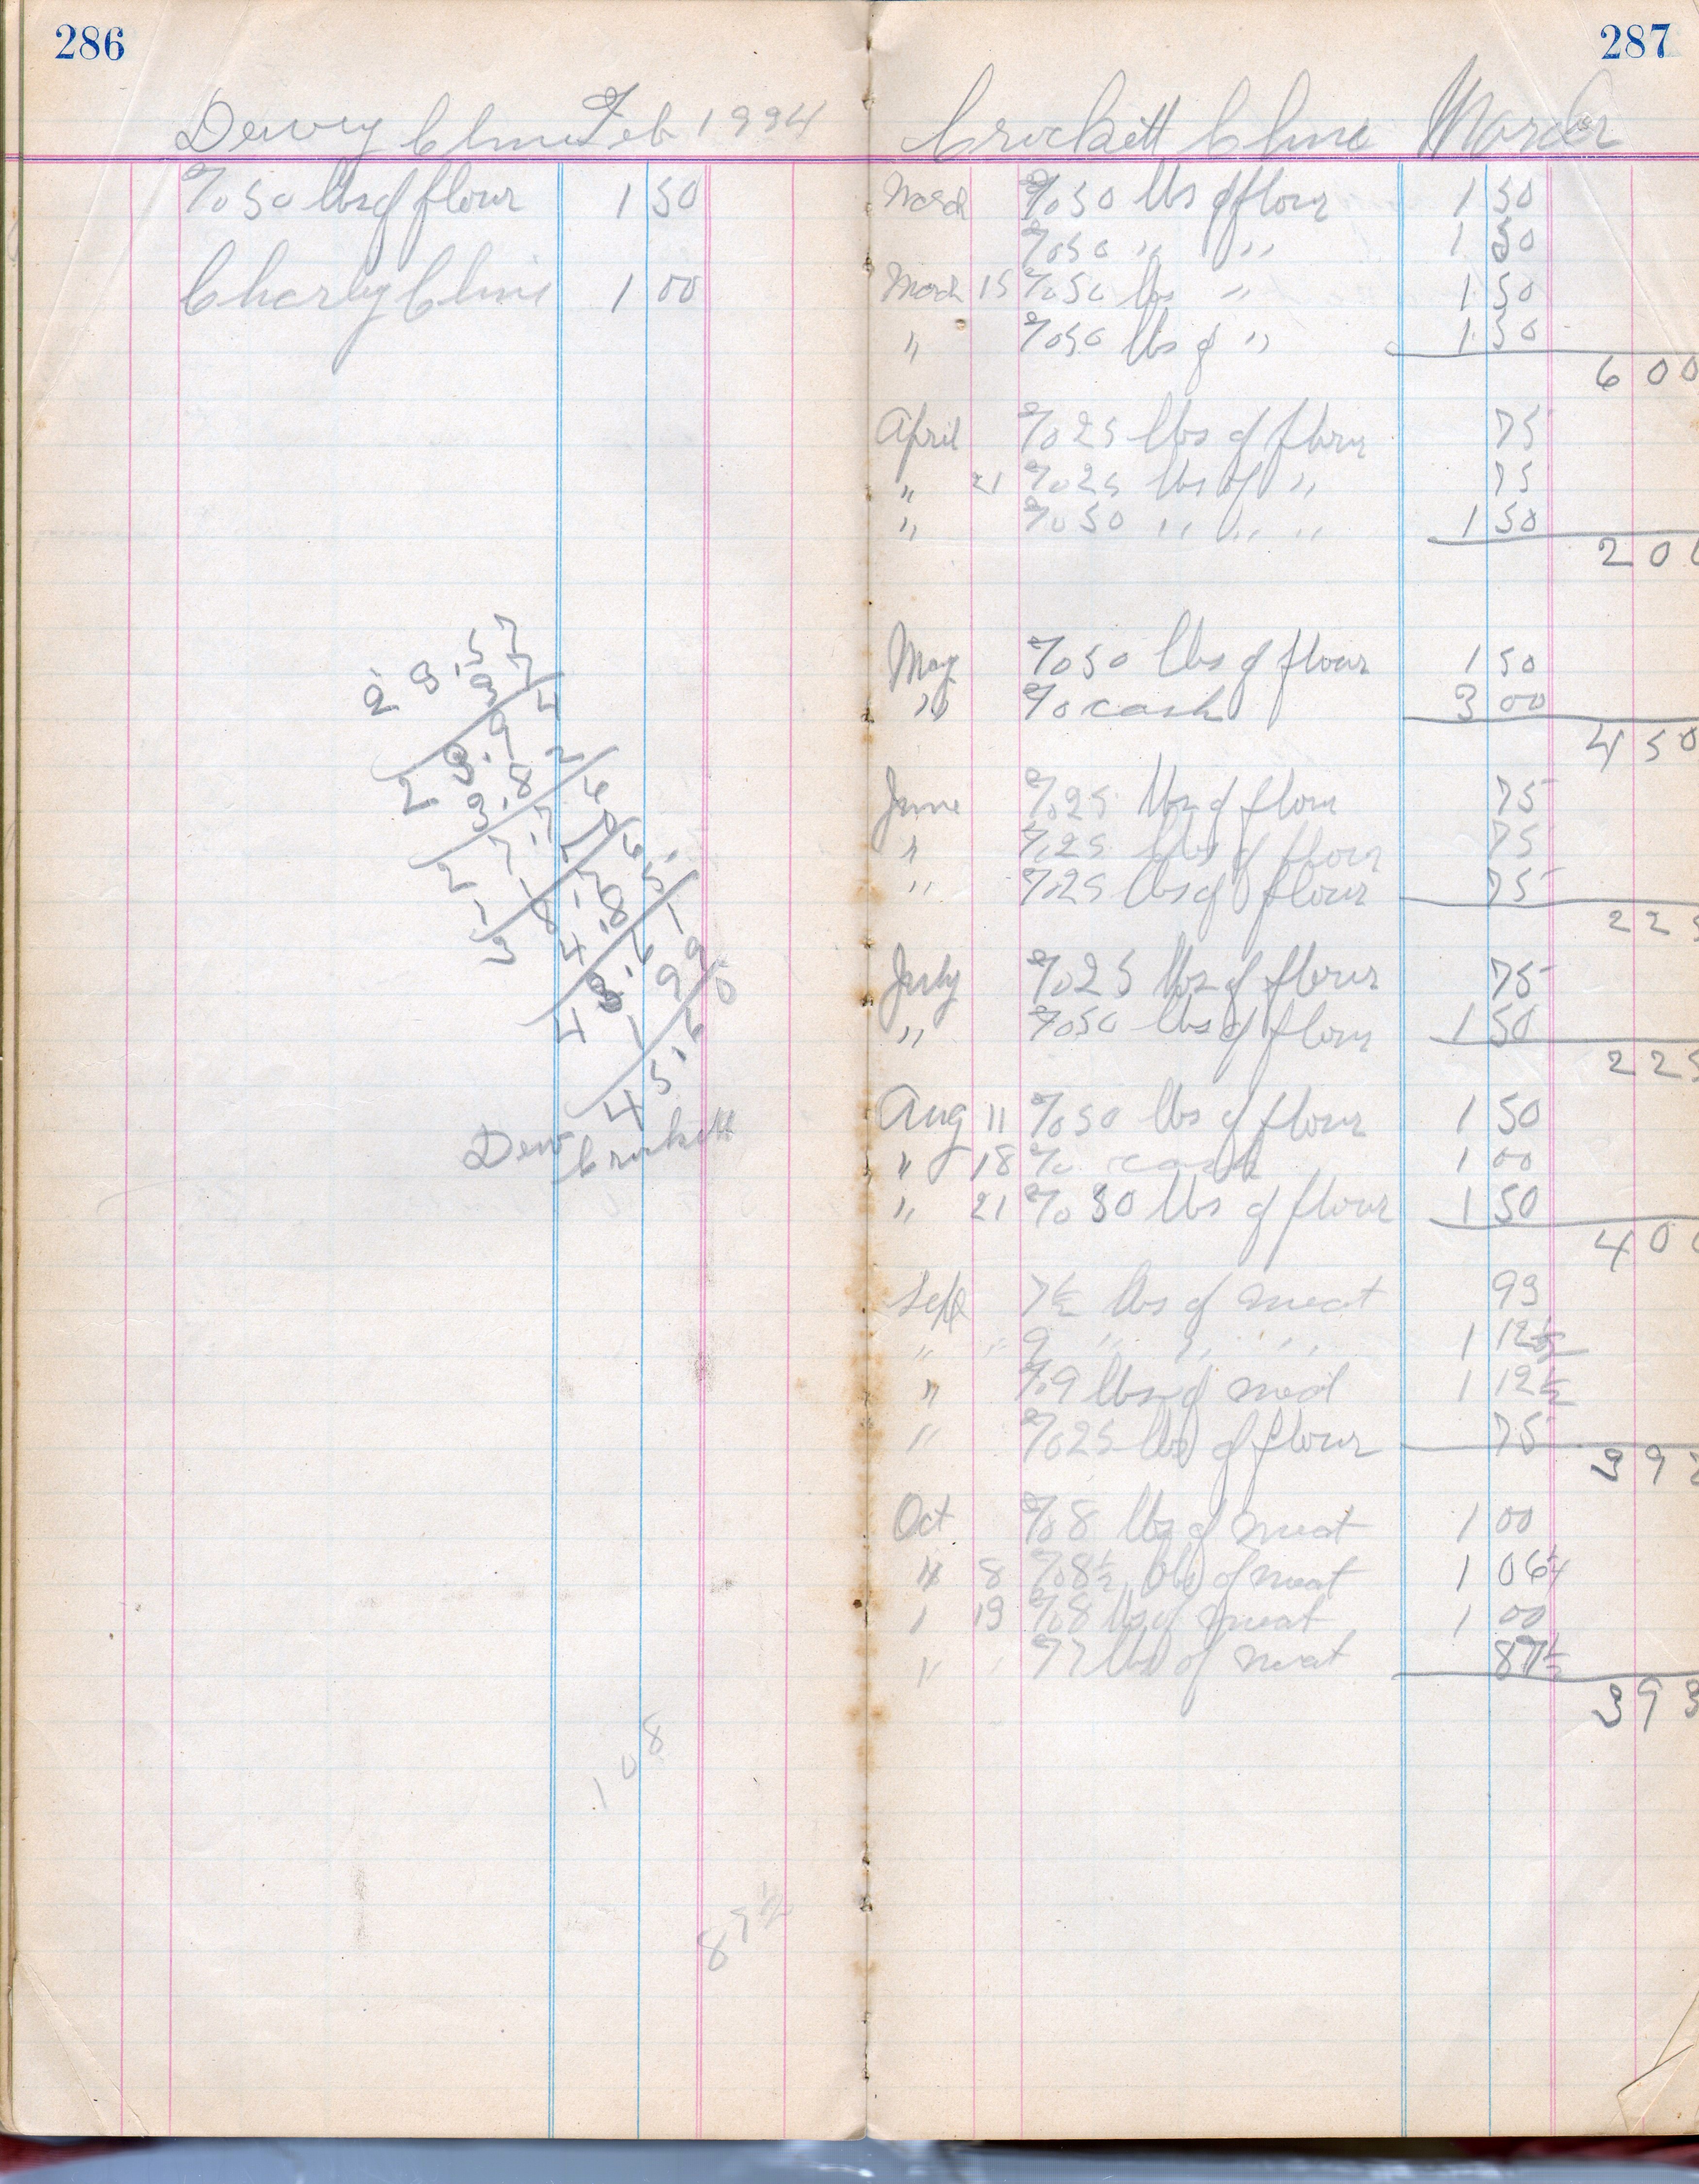 286
Dewey Cline Feb 1934
% 50 lbs of flour 1 50
Charley Cline 1 00
Dew Crockett
108
87½
287
Crockett Cline March
March % 50 lbs of flour 1 50
% 50 " " 1 50
March 15 % 50 lbs " 1 50
" % 50 lbs of " 1 50
6 00
April % 25 lbs of flour 75
" 21 % 25 lbs of " 75
" % 50 " " " 1 50
2 0
May % 50 lbs of flour 1 50
" % cash 3 00
4 50
June % 25 lbs of flour 75
" % 25 lbs of flour 75
" % 25 lbs of flour 75
2 25
July % 25 lbs of flour 75
" % 50 lbs of flour 1 50
2 25
Aug 11 % 50 lbs of flour 1 50
" 18 % cash 1 00
" 21 % 50 lbs of flour 1 50
4 00
Sept 7½ lbs of meat 93
" " 9 " " " 1 12½
" % 9 lbs of meat 1 12½
" % 25 lbs of flour 75
3 9
Oct % 8 lbs of meat 1 00
" 8 % 8½ lbs of meat 1 06¼
" 19 % 8 lbs of meat 1 00
" % 7 lbs of meat 87½
3 93